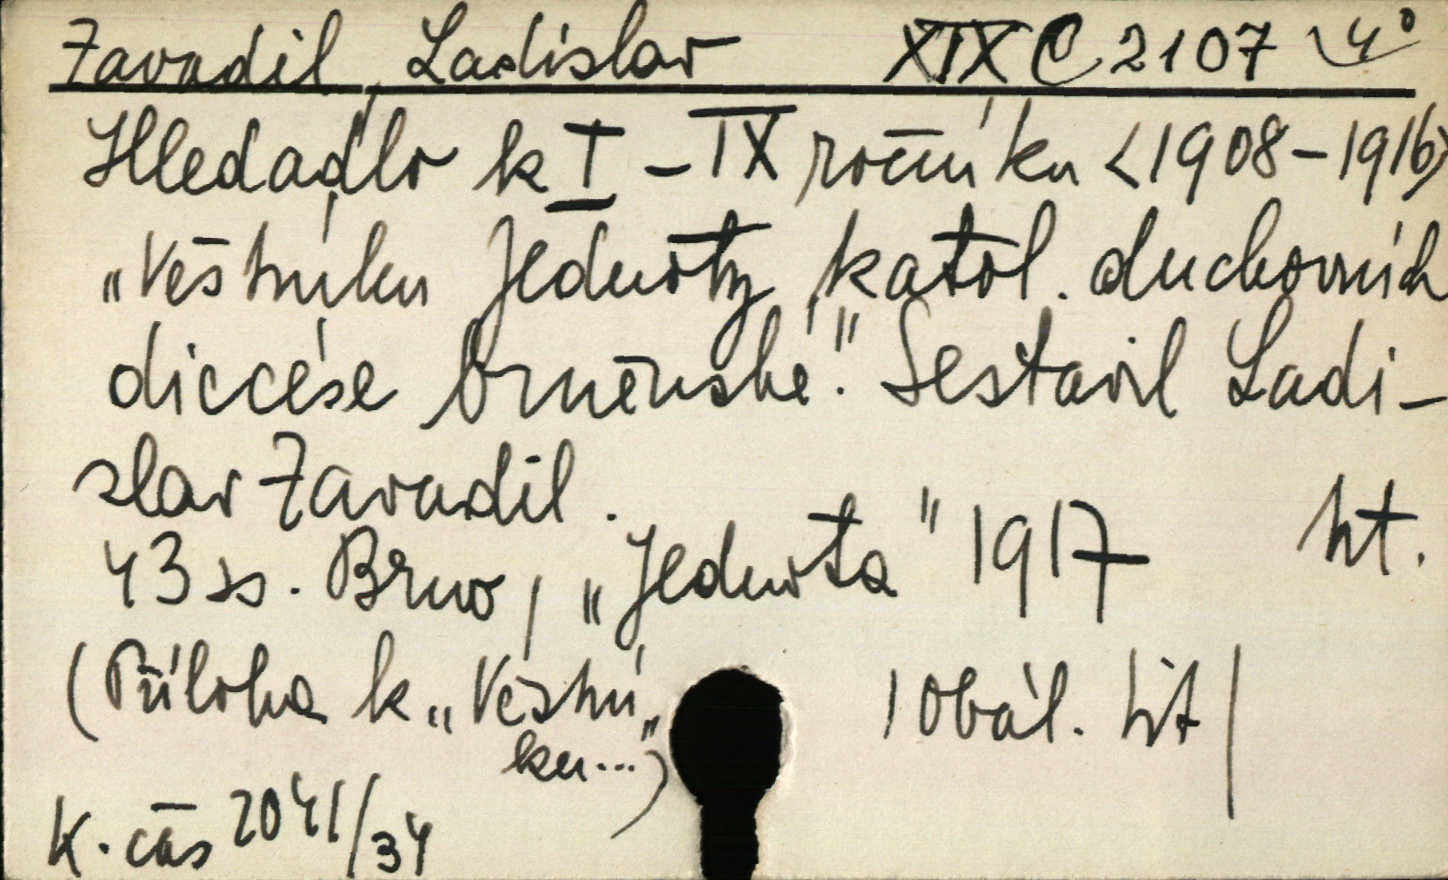 Zavadil, Ladislav XIX C 2107 4°
Hledadlo k I – IX ročníku <1908–1916>
„Věstníku Jednoty katol. duchovních
diecése brněnské." Sestavil Ladi-
slav Zavadil.
43 ss. Brno, „Jednota" 1917 ht.
(Příloha k „Věstní„
ku...)
| Obál. tit |
K. čas 2041/34